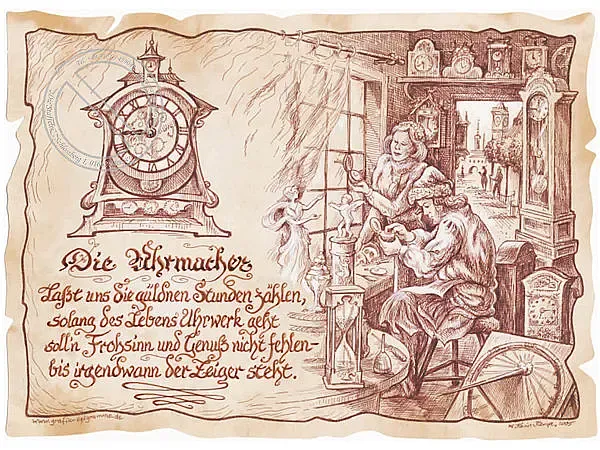 Die Uhrmacher
Laßt uns die güldnen Stunden zählen,
solang des Lebens Uhrwerk geht
soll'n Frohsinn und Genuß nicht fehlen-
bis irgendwann der Zeiger steht.
www.grafik-epigramme.de
2005